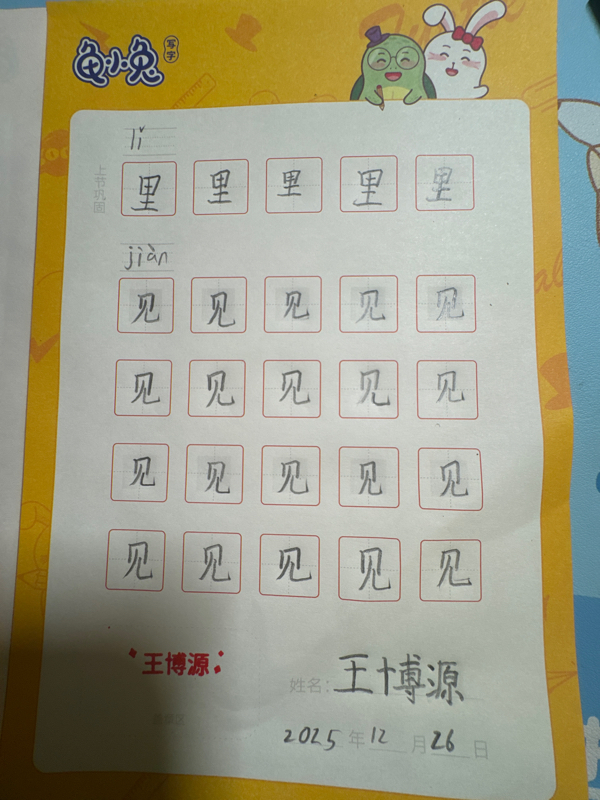 龟小兔写字
lǐ
上节巩固
里里里里里
jiàn
见见见见见
见见见见见
见见见见见
见见见见见
王博源
姓名:王博源
2025年12月26日